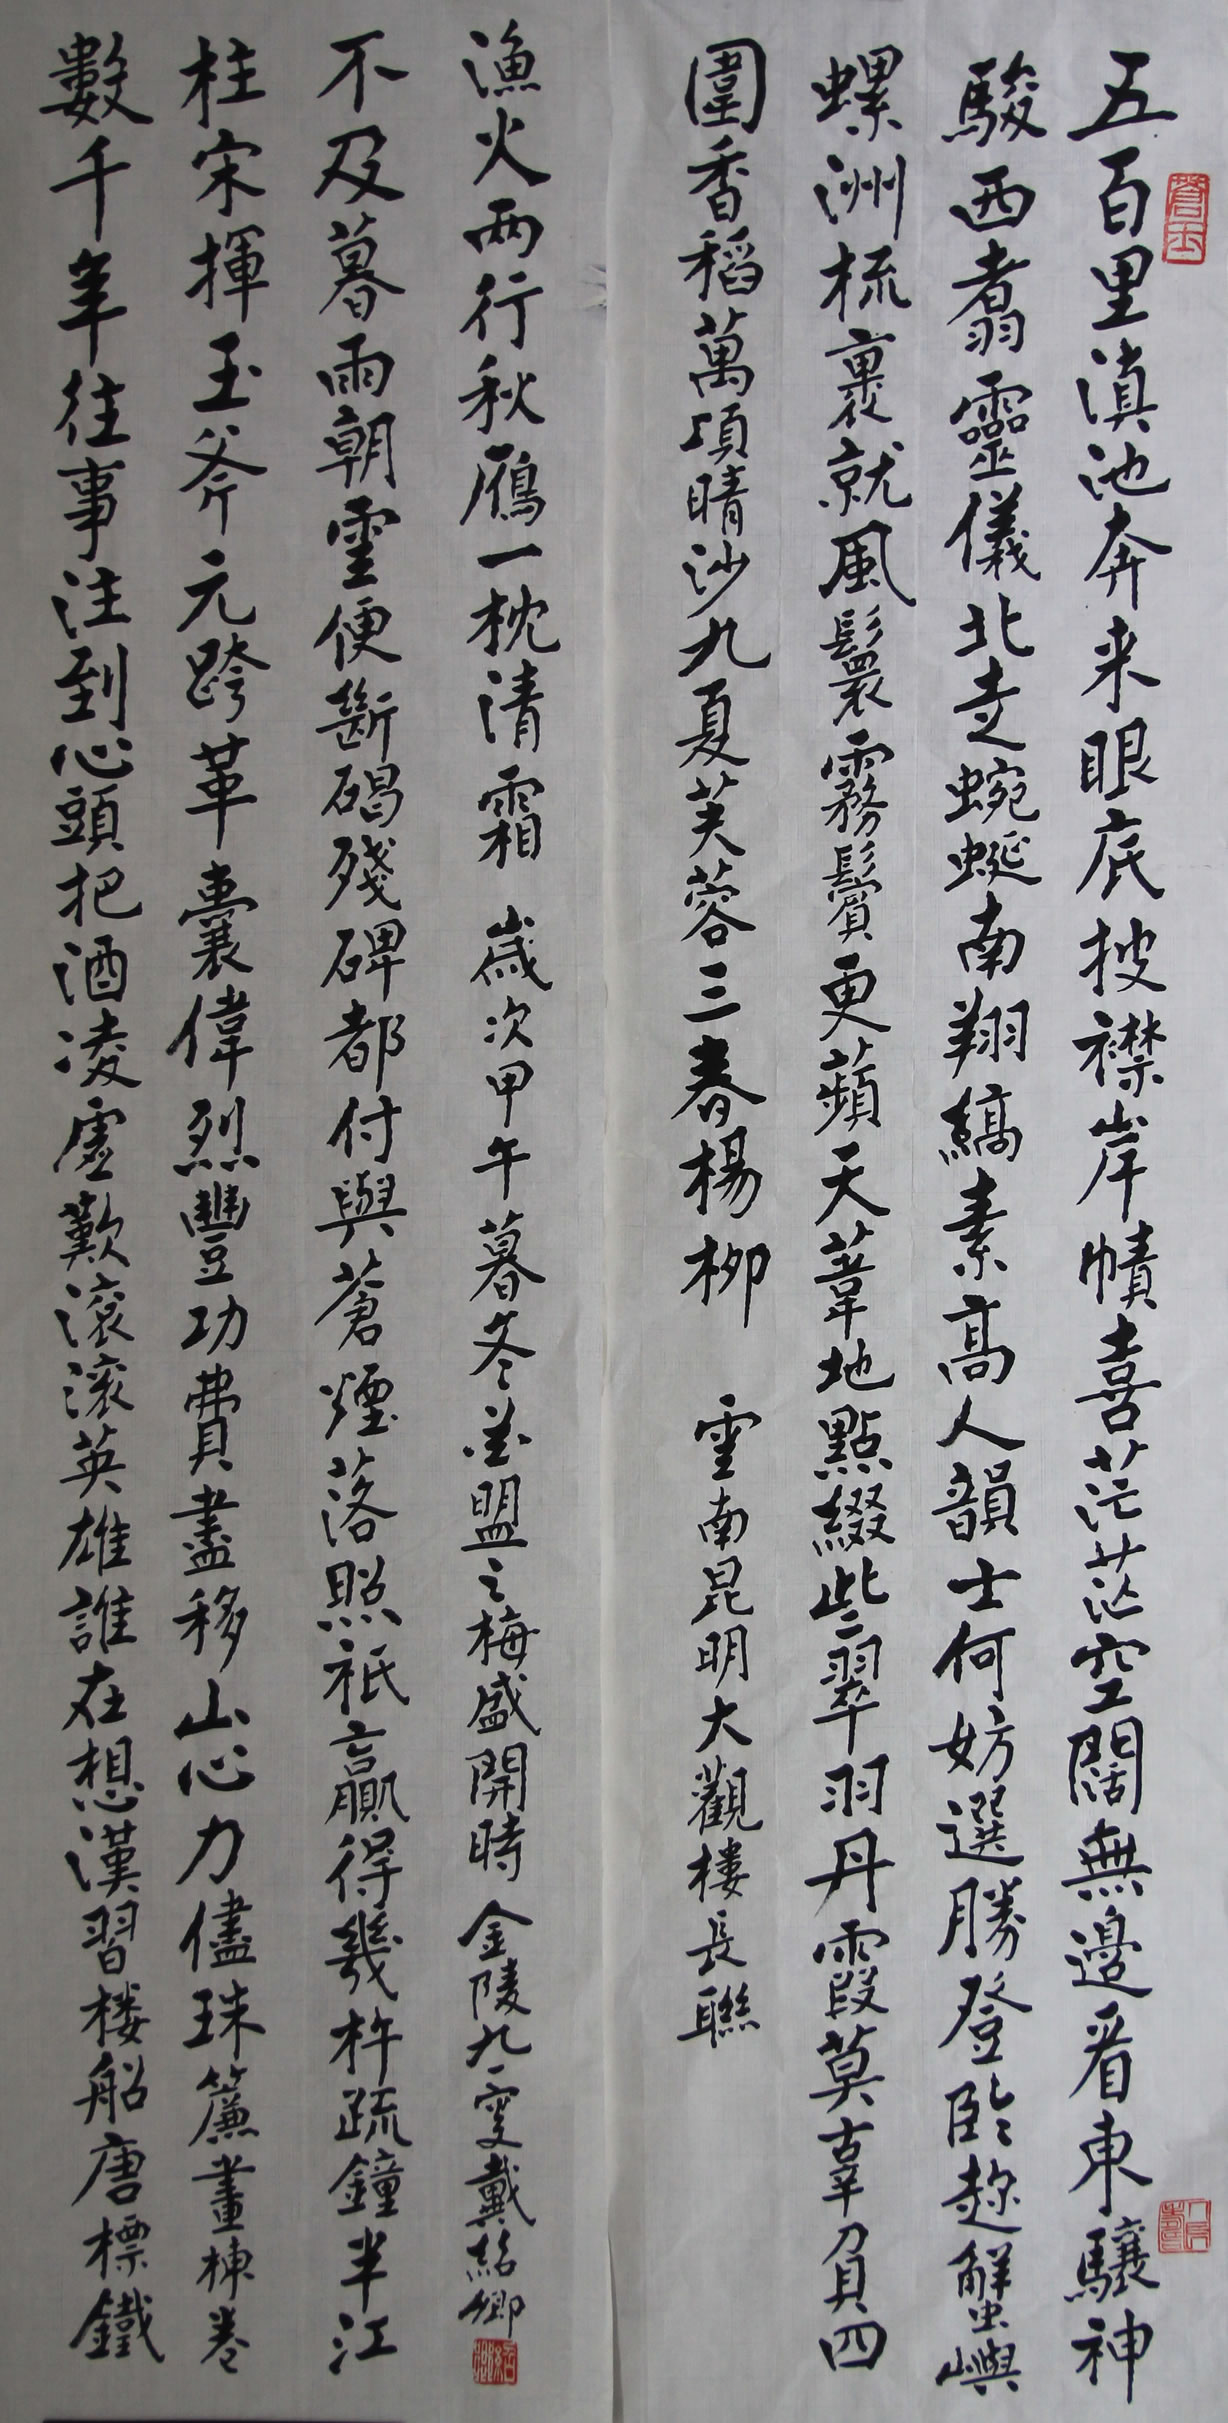 五百里滇池奔来眼底披襟岸幘喜茫茫空闊無邊看東驤神
駿西翥靈儀北走蜿蜒南翔縞素高人韻士何妨選勝登臨趂蟹嶼
螺洲梳裹就風鬟霧鬢更蘋天葦地點綴些翠羽丹霞莫辜負四
圍香稻萬頃晴沙九夏芙蓉三春楊柳 雲南昆明大觀樓長聯
數千年往事注到心頭把酒凌虛歎滾滾英雄誰在想漢習楼船唐標鐵
柱宋揮玉斧元跨革囊偉烈豐功費盡移山心力儘珠簾畫棟卷
不及暮雨朝雲便斷碣殘碑都付與蒼煙落照祇贏得幾杵疏鐘半江
漁火兩行秋雁一枕清霜 歲次甲午暮冬盟之梅盛開時 金陵九叟戴紹卿
紹卿